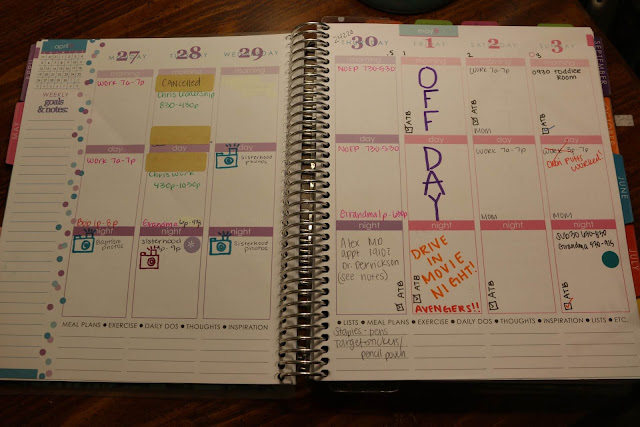 april
WEEKLY
goals
& notes:
27
MONDAY
28
TUESDAY
29
WEDNESDAY
work 7a-7p
Cancelled
830-430p
day
work 7a-7p
Chris work
430p-1030p
Sisterhood
photos
Grandma
night
night
night
Baptism
photos
sisterhood
Sisterhood
photos
MEAL PLANS • EXERCISE • DAILY DOS • THOUGHTS • INSPIRATION
may
30
1
FRIDAY
2
SATURDAY
3
SUNDAY
NOEP 730-530
OFF
DAY
ATB
work 7a-7p
ATB
MOM
0930 toddler
room
ATB
day
day
day
NOEP 730-530
Grandma
work 7a-7p
MOM
MOM
night
night
night
night
Alex MD
appt 1910?
(see notes)
ATB
DRIVE
IN
MOVIE
NIGHT!
AVENGERS!!
ATB
ATB
Grandma
ATB
• LISTS • MEAL PLANS • EXERCISE • DAILY DOS • THOUGHTS • INSPIRATION • LISTS • ETC.
Staples - pens
Target-stickers/
pencil pouch
SEPTEMBER
JUNE